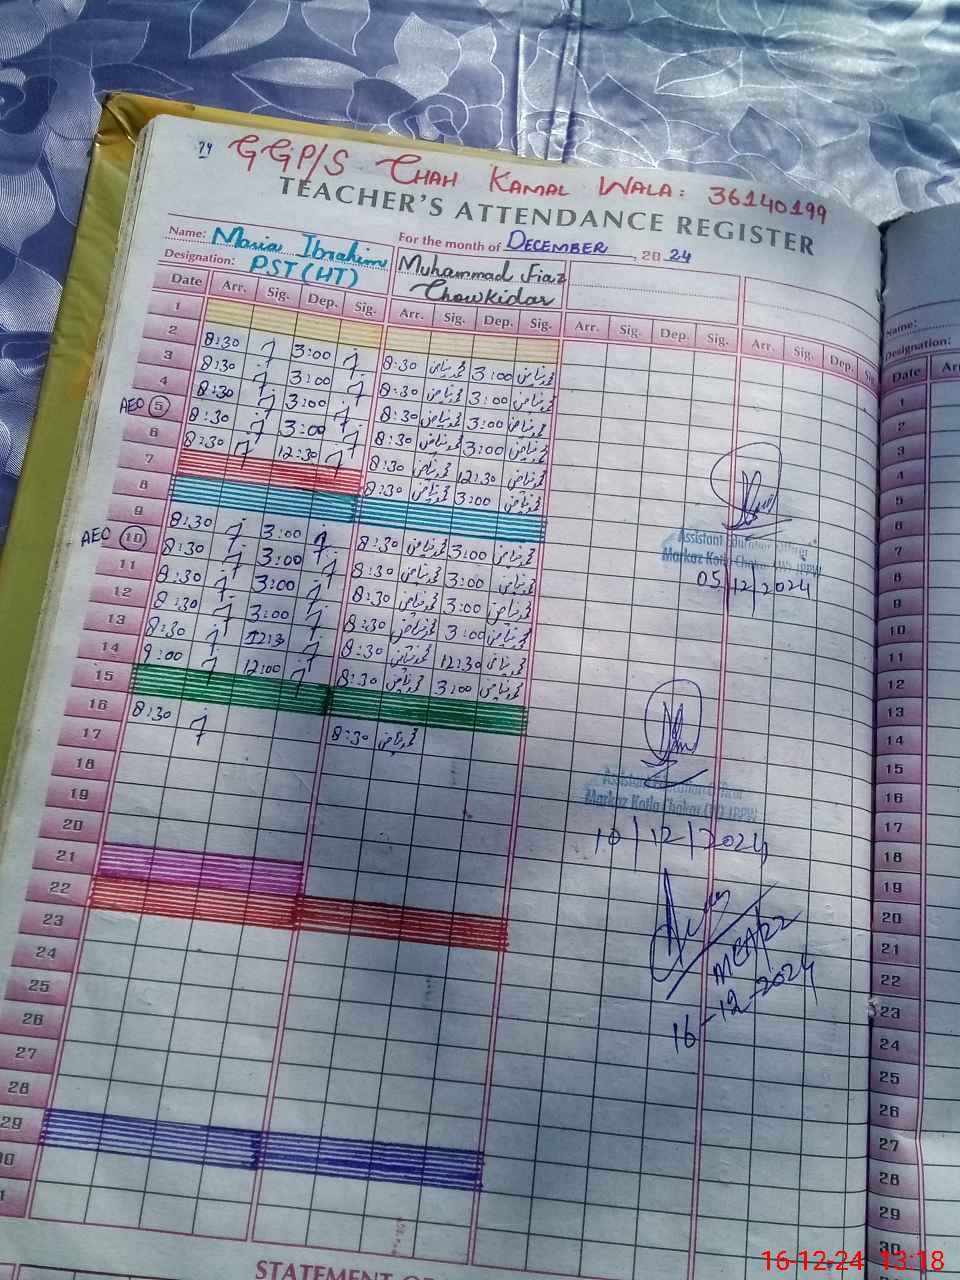 GGP/S CHAH KAMAL WALA: 36140199
TEACHER'S ATTENDANCE REGISTER
Name: Maria Ibrahim
For the month of DECEMBER, 20 24
Designation: PST (HT)
Muhammad Fiaz
Chowkidar
Date Arr. Sig. Dep. Sig. Arr. Sig. Dep. Sig. Arr. Sig. Dep. Sig. Arr. Sig. Dep.
1
2 8:30 3:00 8:30 محمد فیاض 3:00 محمد فیاض
3 8:30 3:00 8:30 محمد فیاض 3:00 محمد فیاض
4 8:30 3:00 8:30 محمد فیاض 3:00 محمد فیاض
AEO 5 8:30 3:00 8:30 محمد فیاض 3:00 محمد فیاض
6 8:30 12:30 8:30 محمد فیاض 12:30 محمد فیاض
7 8:30 محمد فیاض 3:00 محمد فیاض
8
9 8:30 3:00 8:30 محمد فیاض 3:00 محمد فیاض
AEO 10 8:30 3:00 8:30 محمد فیاض 3:00 محمد فیاض
11 8:30 3:00 8:30 محمد فیاض 3:00 محمد فیاض
12 8:30 3:00 8:30 محمد فیاض 3:00 محمد فیاض
13 8:30 8:30 محمد فیاض 12:30 محمد فیاض
14 9:00 12:00 8:30 محمد فیاض 3:00 محمد فیاض
15
16 8:30 8:30 محمد فیاض
17
18
19
20
21
22
23
24
25
26
27
28
29
Assistant Education Officer
Markaz Kotla Chakar
05/12/2024
Assistant Education Officer
Markaz Kotla Chakar
10/12/2024
MEA/22
16-12-2024
STATEMENT
Name:
Designation:
Date
1
2
3
4
5
6
7
8
9
10
11
12
13
14
15
16
17
18
19
20
21
22
23
24
25
26
27
28
29
30
16-12-24 13:18